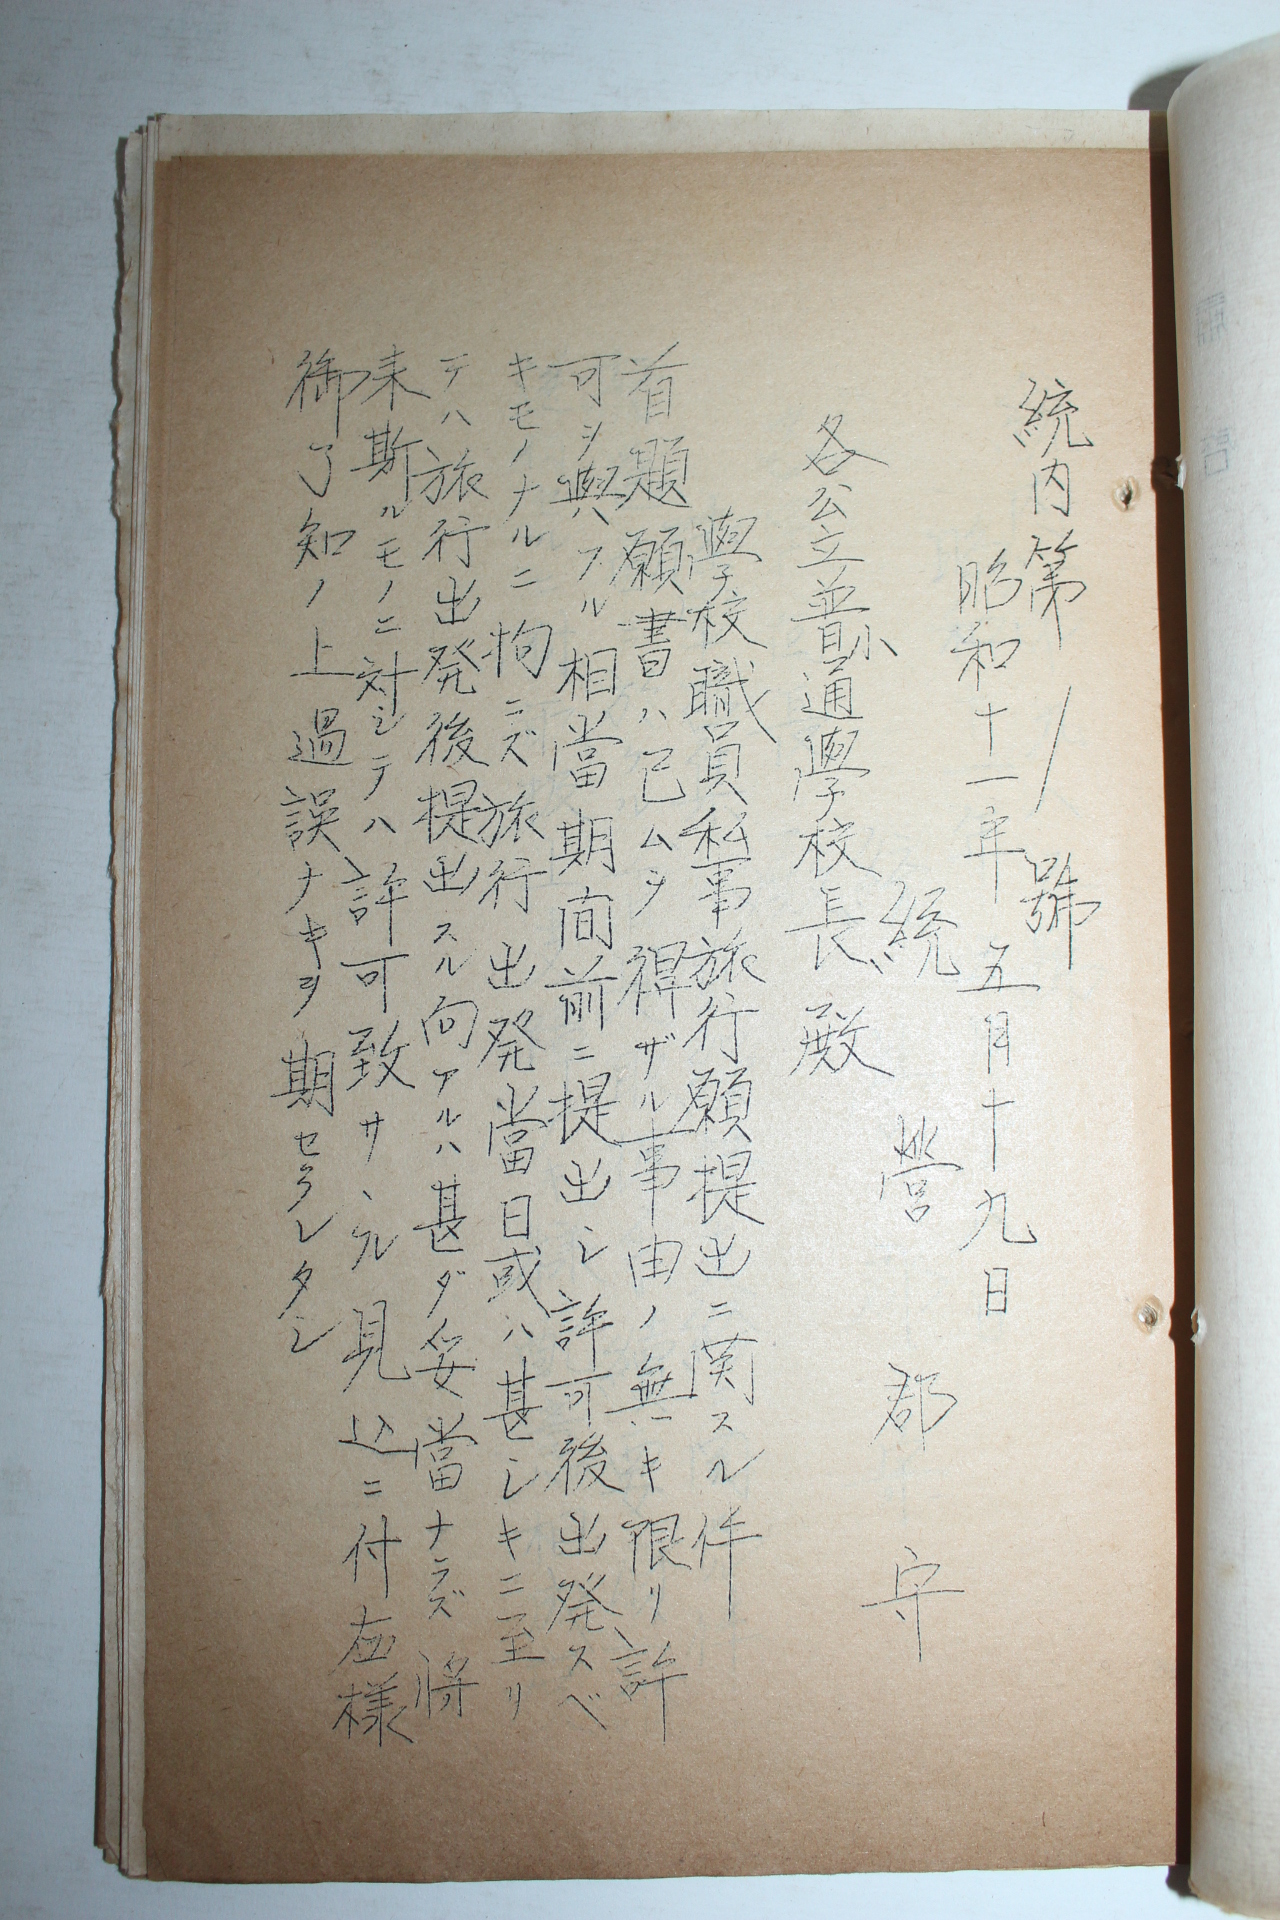 統内第 / 號
昭和十一年五月十九日
統營郡守
各公立普小通學校長殿
學校職員私事旅行願提出ニ関スル件
首題願書ハ已ムヲ得ザル事由ノ無キ限リ許
可ヲ與ハフル相當期间前ニ提出シ許可後出発スベ
キモノナルニ拘ニズ旅行出発當日或ハ甚シキニ至リ
テハ旅行出発後提出スル向アルハ甚ダ妥當ナラズ将
来斯ルモノニ対シテハ許可致サヽル見込ニ付右様
御了知ノ上過誤ナキヲ期セラレタシ